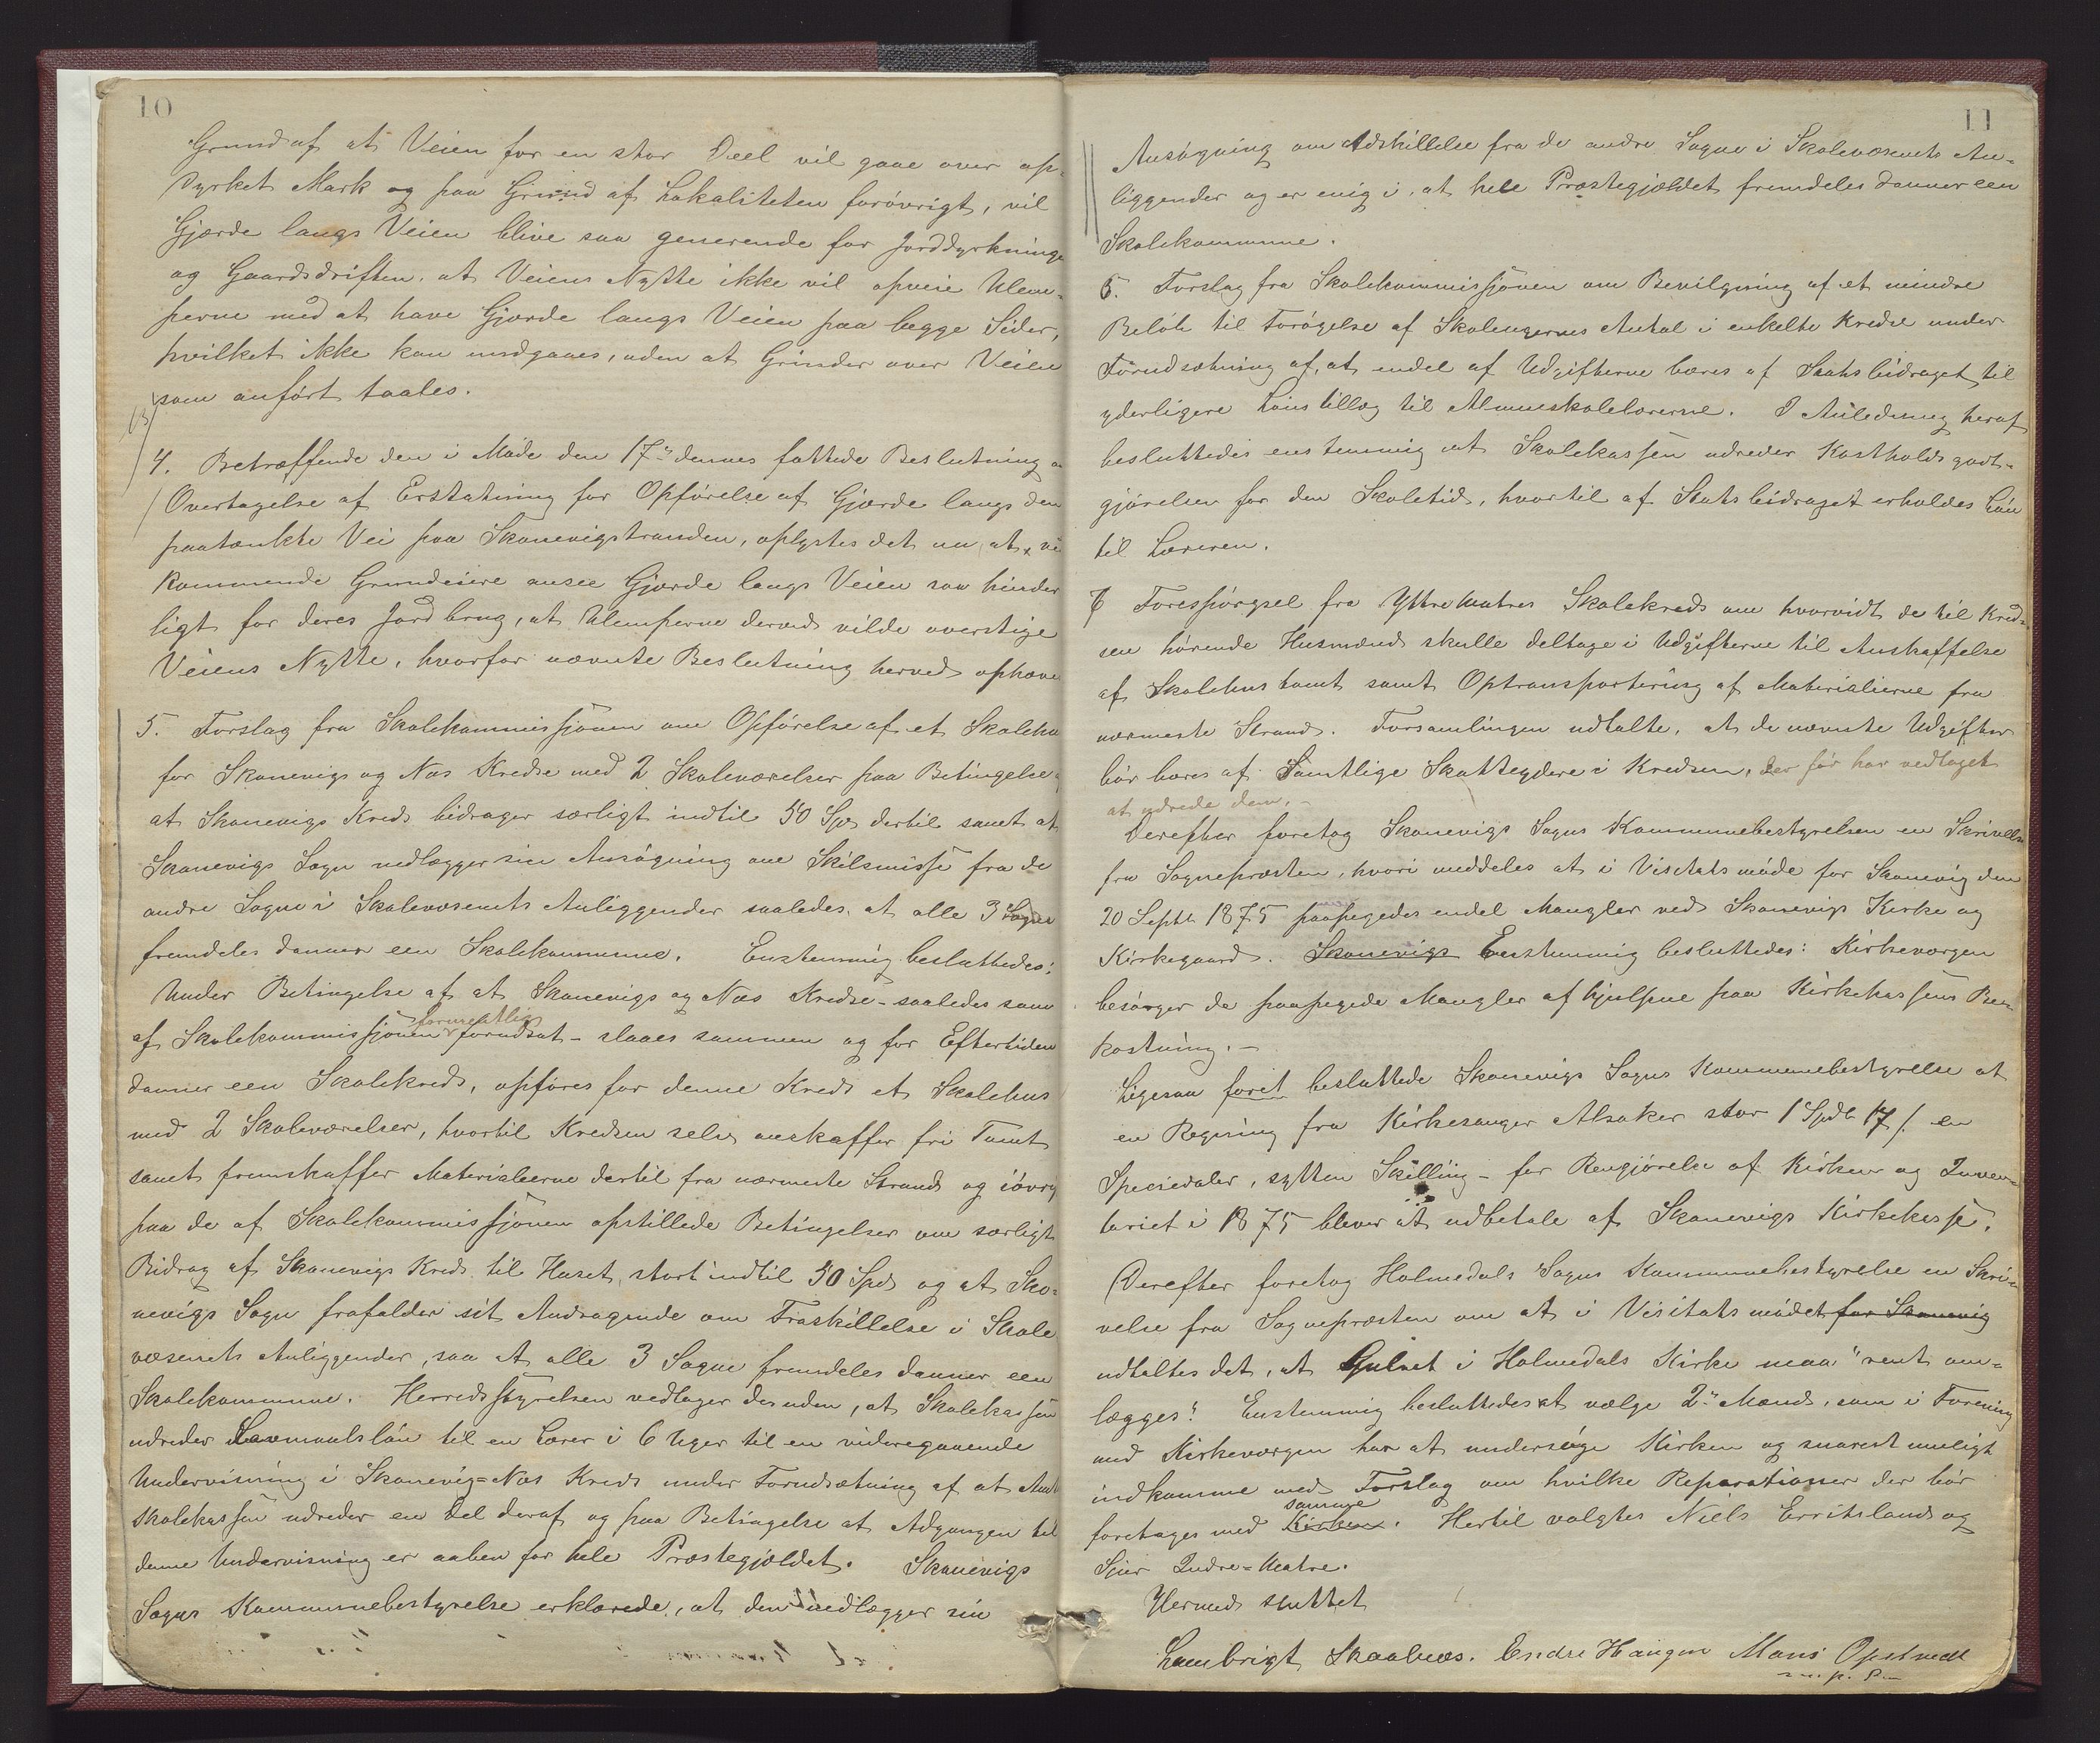 10
Grund af at Veien for en stor Deel vil gaae over op-
dyrket Mark og paa Grund af Lokaliteten forøvrigt, vil
Gjærde langs Veien blive saa generende for Jorddyrkninge
og Gaardsdriften. at Veiens Nytte ikke vil opveie Ulem-
perne med at have Gjærde langs Veien paa begge Sider,
hvilket ikke kan undgaaes, uden at Grinder over Veien
som anført taales.
4. Betræffende den i Møde den 17de dennes fattede Beslutning
Overtagelse af Erstatning for Opførelse af Gjærde langs den
paatænkte Vei paa Skonevigstranden, oplystes det nu, at, ve
kommende Grundeiere ansee Gjærde langs Veien saa hinder
ligt for deres Jordbrug, at Ulemperne derved vilde overstige
Veiens Nytte, hvorfor nævnte Beslutning herved ophæve
5. Forslag fra Skolekommissjonen om Opførelse af et Skolehu
for Skonevigs og Næs Kredse med 2 Skoleværelser paa Betingelse
at Skonevigs Kreds bidrager særligt indtil 50 Spd dertil samt at
Skonevigs Sogn nedlægger sin Ansøgning om Skilsmisse fra de
andre Sogne i Skolevæsenets Anliggender saaledes, at alle 3 Sogne
fremdeles danner een Skolekommune. Enstemmig besluttedes:
Under Betingelse af at Skonevigs og Næs Kredse - saaledes som
af Skolekommissjonen formentlig forudsat - slaaes sammen og for Eftertiden
danner een Skolekreds, opføres for denne Kreds et Skolehus
med 2 Skoleværelser, hvortil Kredsen selv anskaffer fri Tomt
samt fremskaffer Materialierne dertil fra nærmeste Strand og iøvrg
paa de af Skolekommissjonen opstillede Betingelser om særligt
Bidrag af Skonevigs Kreds til Huset, stort indtil 50 Spd og at Sko-
nevigs Sogn frafalder sit Andragende om Fraskillelse i Skole
væsenets Anliggender, saa at alle 3 Sogne fremdeles danner een
Skolekommune. Herredsstyrelsen vedtager desuden, at Skolekassen
udreder Lavmaalsløn til en Lærer i 6 Uger til en videregaaende
Undervisning i Skonevig=Næs Kreds under Forudsætning af at Amt
skolekassen udreder en Del deraf og paa Betingelse at Adgangen til
denne Undervisning er aaben for hele Præstegjældet. Skonevigs
Sogns Kommunebestyrelse erklærede, at den nedlægger sin
11
Ansøgning om Adskillelse fra de andre Sogne i Skolevæsenets An-
liggender og er enig i, at hele Præstegjældet fremdeles danner een
Skolekommune.
6. Forslag fra Skolekommissjonen om Bevilgning af et mindre
Beløb til Forøgelse af Skoleugernes Antal i enkelte Kredse under
Forudsætning af, at endel af Udgifterne bæres af Statsbidraget til
yderligere Lønstillæg til Almueskolelærerne. I Anledning heraf
besluttedes enstemmig at Skolekassen udreder Kostholdsgodt-
gjørelsen for den Skoletid, hvortil af Statsbidraget erholdes Løn
til Læreren.
7 Forespørgsel fra Ytre Matres Skolekreds om hvorvidt de til Kred-
sen hørende Husmænd skulle deltage i Udgifterne til Anskaffelse
af Skolehustomt samt Optransportering af Materialierne fra
nærmeste Strand. Forsamlingen udtalte, at de nævnte Udgifter
bør bæres af Samtlige Skatteydere i Kredsen, der før har vedtaget
at udrede dem. -
Derefter foretog Skonevigs Sogns Kommunebestyrelsen en Skrivelse
fra Sognepræsten, hvori meddeles at i Visitatsmøde for Skonevig den
20 Septb 1875 paapegedes endel Mangler ved Skonevigs Kirke og
Kirkegaard. Skonevigs Eenstemmig besluttedes: Kirkeværgen
besørger de paapegede Mangler afhjulpne paa Kirkekassens Be-
kostning. -
Ligesaa foret besluttede Skonevigs Sogns Kommunebestyrelse at
en Regning fra Kirkesanger Alsaker stor 1 Spdlr 17 s. en
Speciedaler, sytten Skilling - for Rengjørelse af Kirken og Inven-
tariet i 1875 bliver at udbetale af Skonevigs Kirkekasse.
Derefter foretog Holmedals Sogns Kommunebestyrelse en Skri-
velse fra Sognepræsten om at i Visitatsmødet for Skonevig
udtaltes det, at Gulvet i Holmedals Kirke maa "rent om-
lægges". Enstemmig besluttedes at vælge 2de Mænd, som i Forening
med Kirkeværgen har at undersøge Kirken og snarest muligt
indkomme med Forslag om hvilke Reparationer der bør
foretages med Kirken samme. Hertil valgtes Niels Erritsland og
Sjur Indre=Matre.
Hermed sluttet
Lambrigt Skaalnes. Endre Haugen Mons Opstvedt
m. p. P.